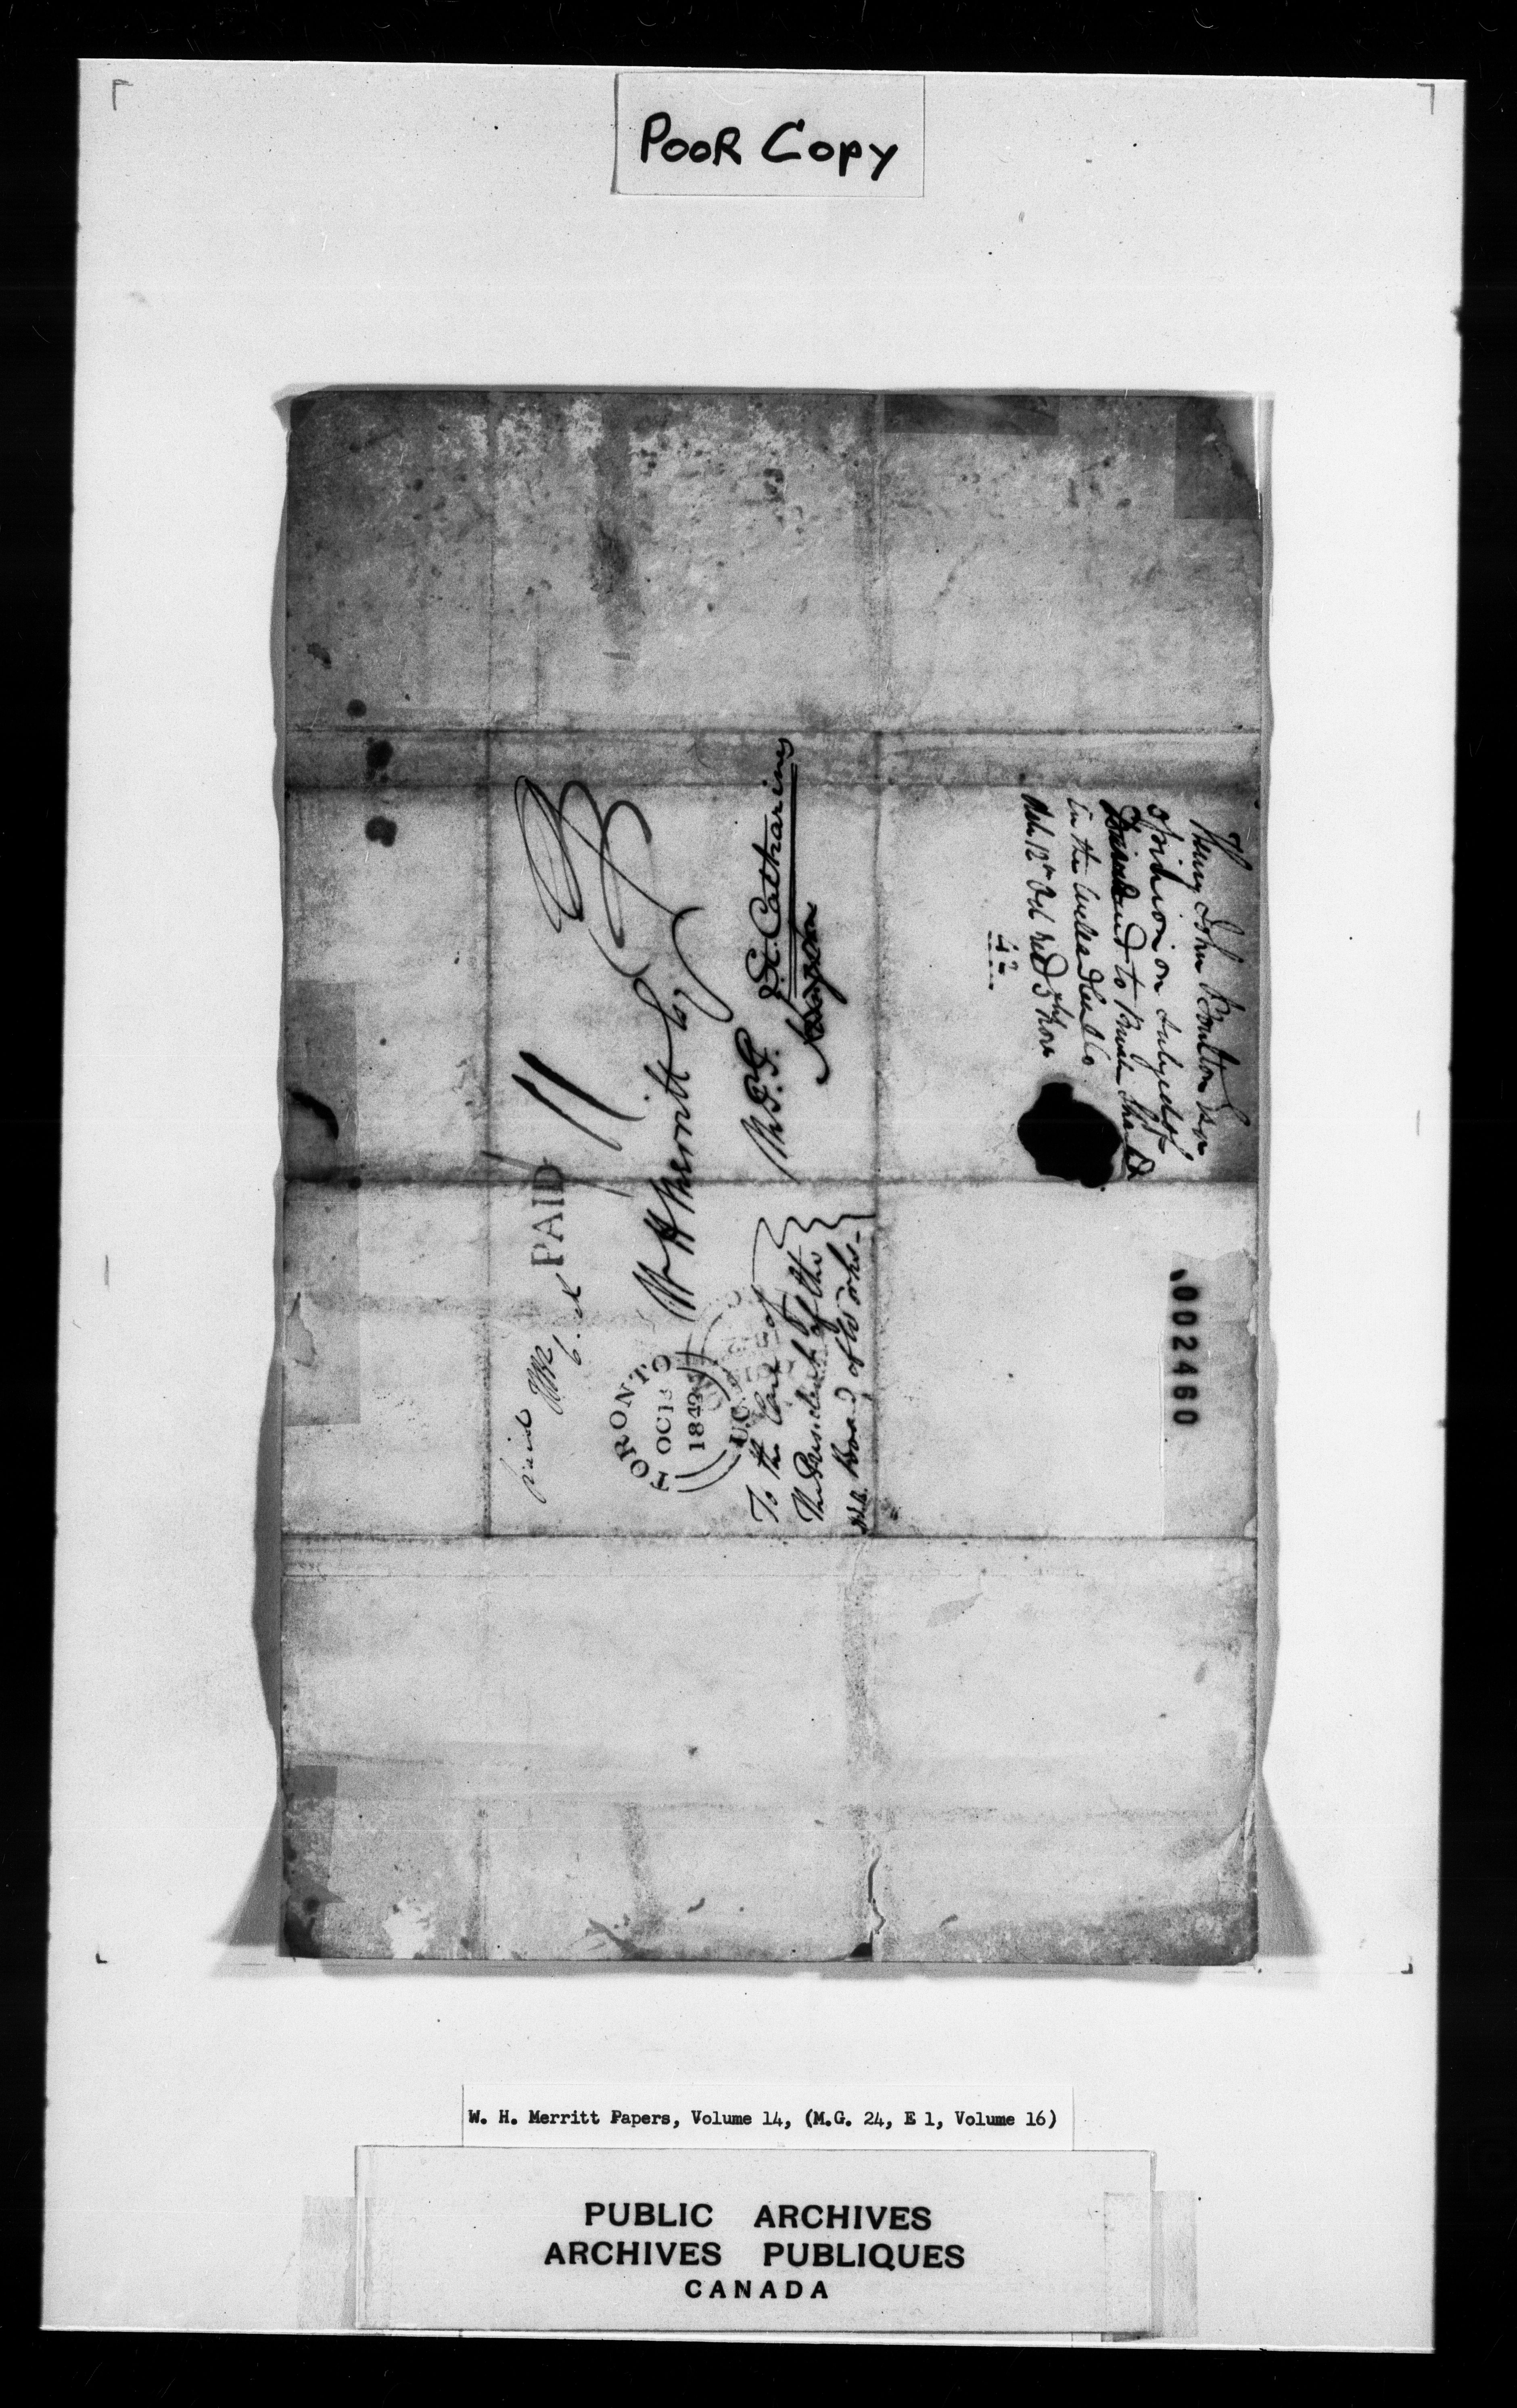 POOR COPY
paid
PAID
TORONTO
OC 13
1842
U.C.
W H Merritt Esq
M.P.P.
St. Catharines
Kingston
To the Care of
The President of the
Board of Works-
Henry John Boulton Esqr
opinion on subject of
Dividend to Private
in the Welland
12th Oct
42
002460
W. H. Merritt Papers, Volume 14, (M.G. 24, E 1, Volume 16)
PUBLIC ARCHIVES
ARCHIVES PUBLIQUES
CANADA